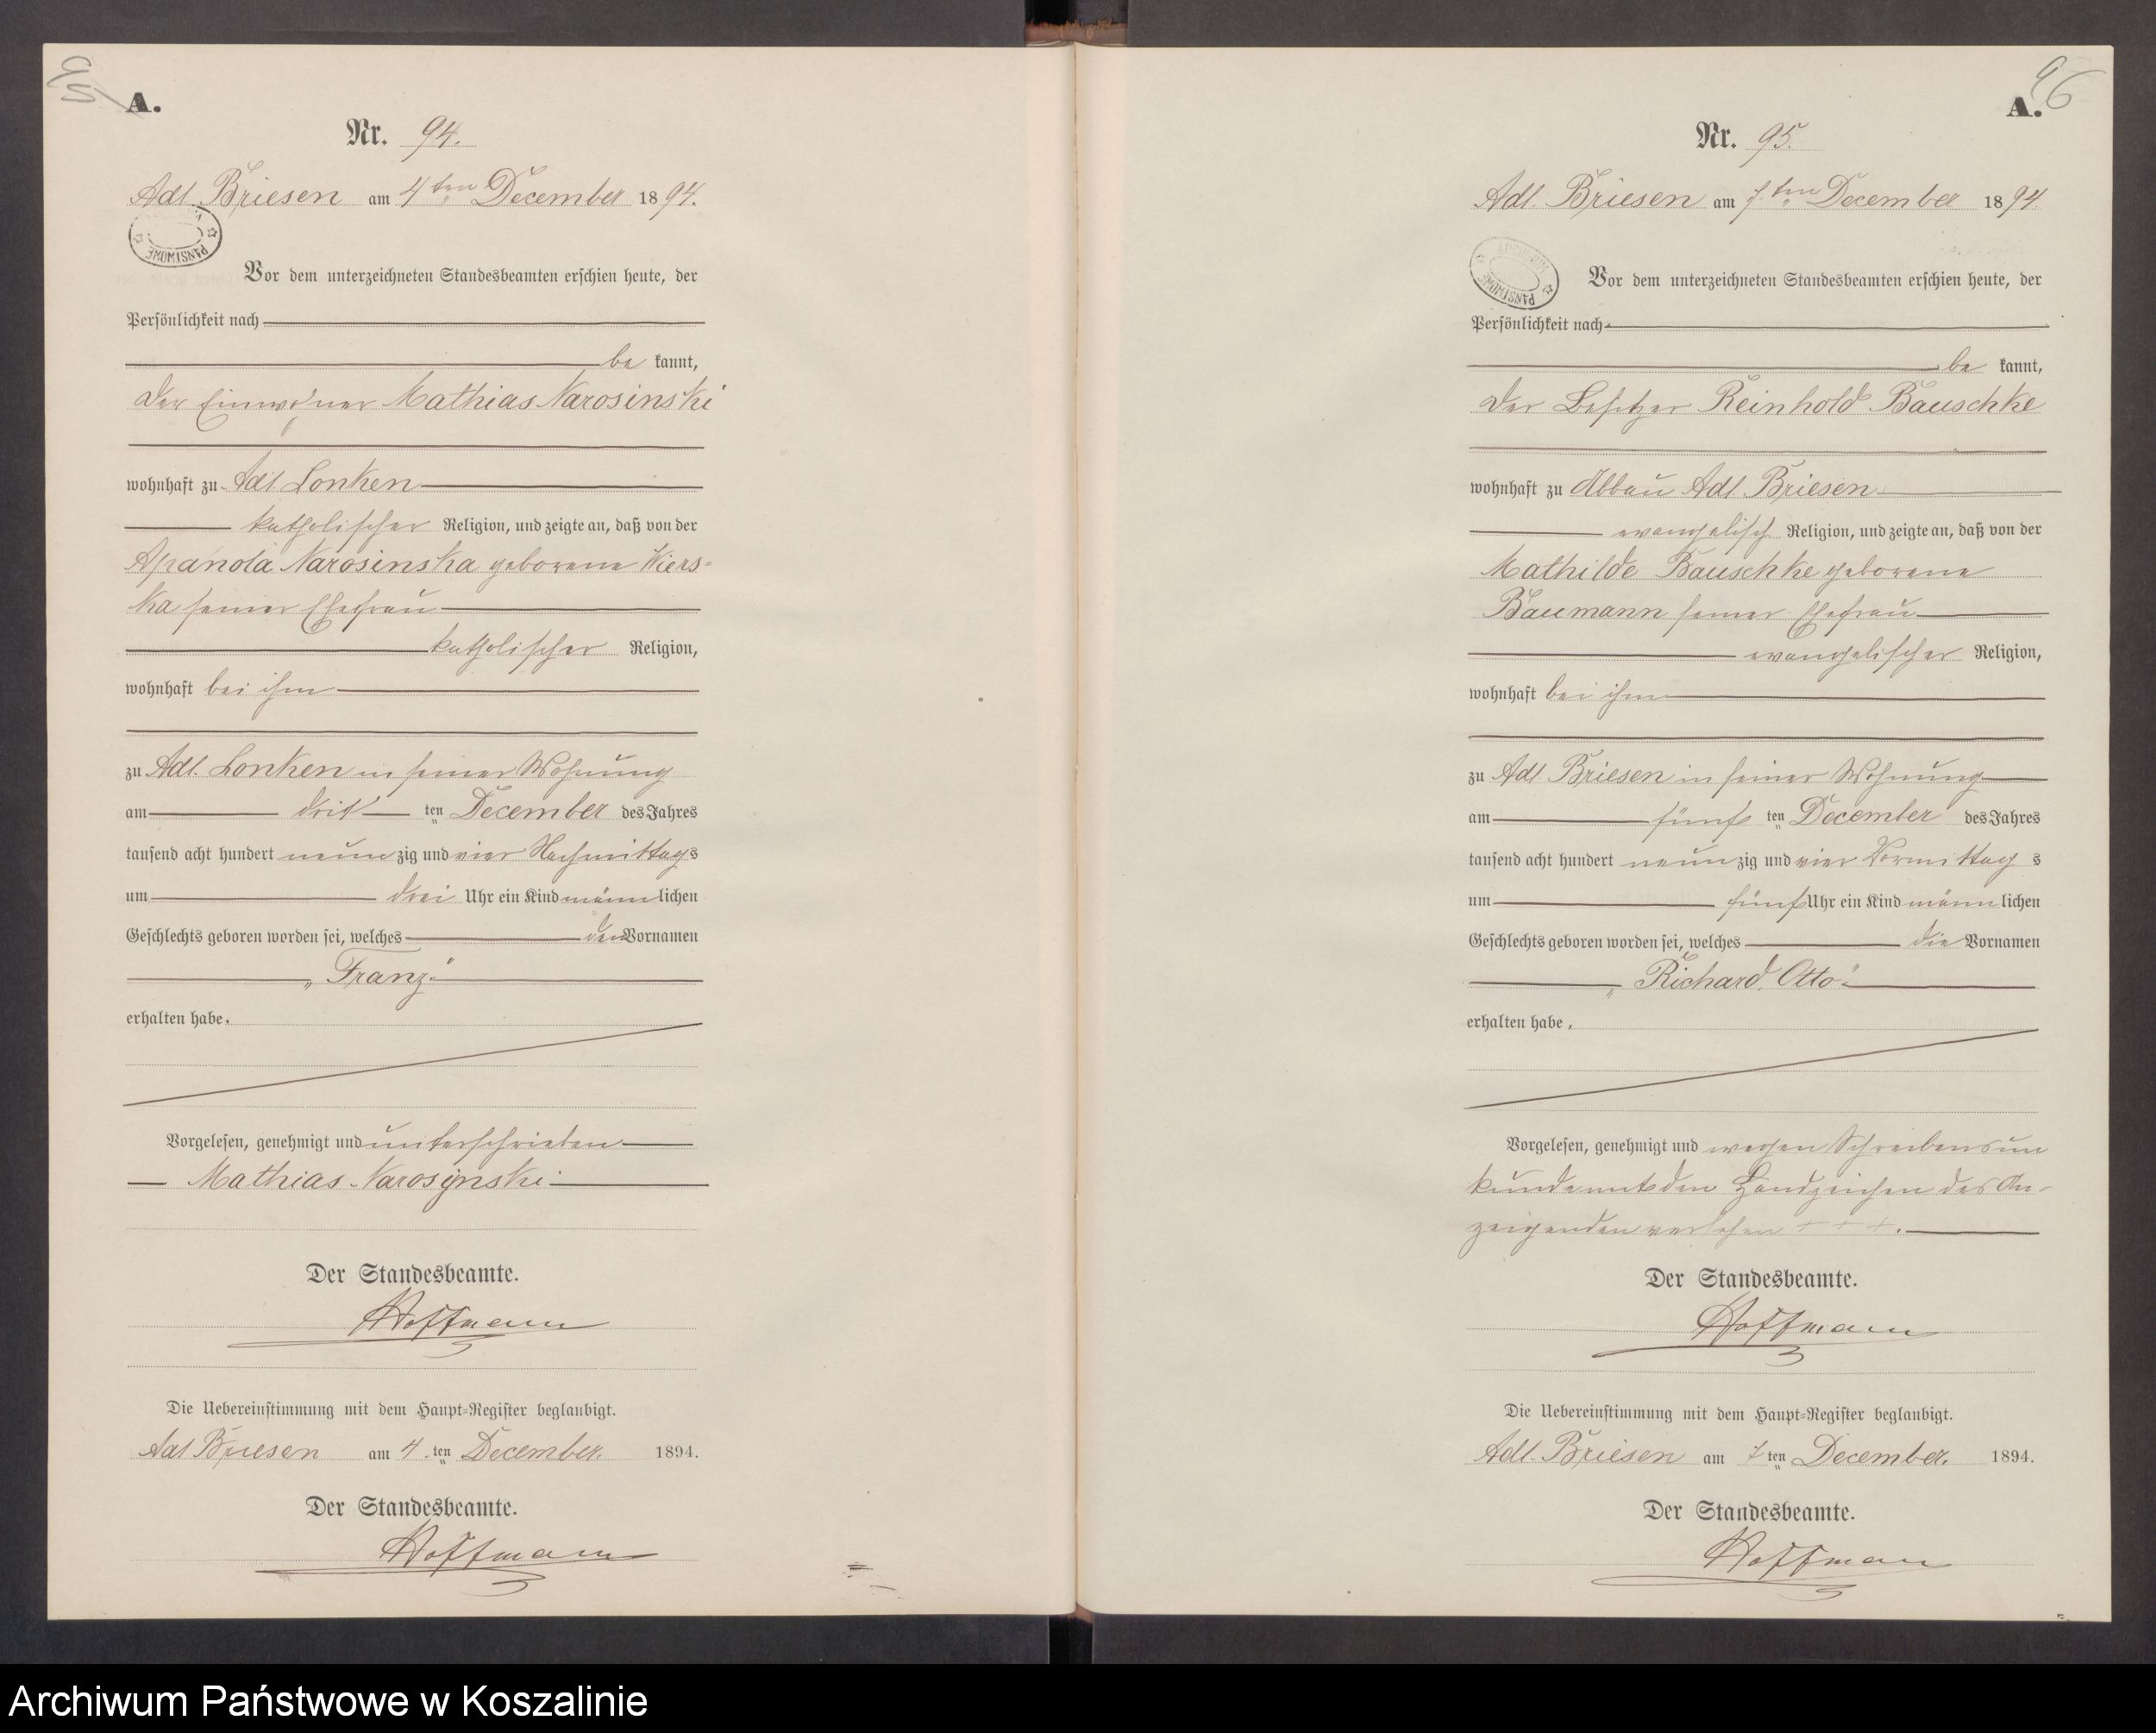 95
A.
Nr. 94.
Adl. Briesen am 4ten December 1894.
PAŃSTWOWE
Vor dem unterzeichneten Standesbeamten erschien heute, der
Persönlichkeit nach
be kannt,
der Einwohner Mathias Narosinski
wohnhaft zu Adl Lonken
katholischer Religion, und zeigte an, daß von der
Narosinska geborene Wiers=
ka seiner Ehefrau
katholischer Religion,
wohnhaft bei ihm
zu Adl. Lonken in seiner Wohnung
am drit ten December des Jahres
tausend acht hundert neun zig und vier Nachmittags
um drei Uhr ein Kind männ lichen
Geschlechts geboren worden sei, welches den Vornamen
„Franz“
erhalten habe.
Vorgelesen, genehmigt und unterschrieben
Mathias Narosynski
Der Standesbeamte.
Hoffmann
Die Uebereinstimmung mit dem Haupt=Register beglaubigt.
Adl Briesen am 4. ten December. 1894.
Der Standesbeamte.
Hoffmann
96
A.
Nr. 95.
Adl. Briesen am 7ten December 1894
ARCHIWUM PAŃSTWOWE
Vor dem unterzeichneten Standesbeamten erschien heute, der
Persönlichkeit nach
be kannt,
der Besitzer Reinhold Bauschke
wohnhaft zu Abbau Adl Briesen
evangelisch Religion, und zeigte an, daß von der
Mathilde Bauschke geborene
Baumann seiner Ehefrau
evangelischer Religion,
wohnhaft bei ihm
zu Adl Briesen in seiner Wohnung
am fünf ten December des Jahres
tausend acht hundert neun zig und vier Vormittag s
um fünf Uhr ein Kind männ lichen
Geschlechts geboren worden sei, welches die Vornamen
„Richard, Otto“
erhalten habe.
Vorgelesen, genehmigt und wegen Schreibensun
kunde mit den Handzeichen des An-
zeigenden versehen + + +.
Der Standesbeamte.
Hoffmann
Die Uebereinstimmung mit dem Haupt=Register beglaubigt.
Adl. Briesen am 7 ten December. 1894.
Der Standesbeamte.
Hoffmann
Archiwum Państwowe w Koszalinie